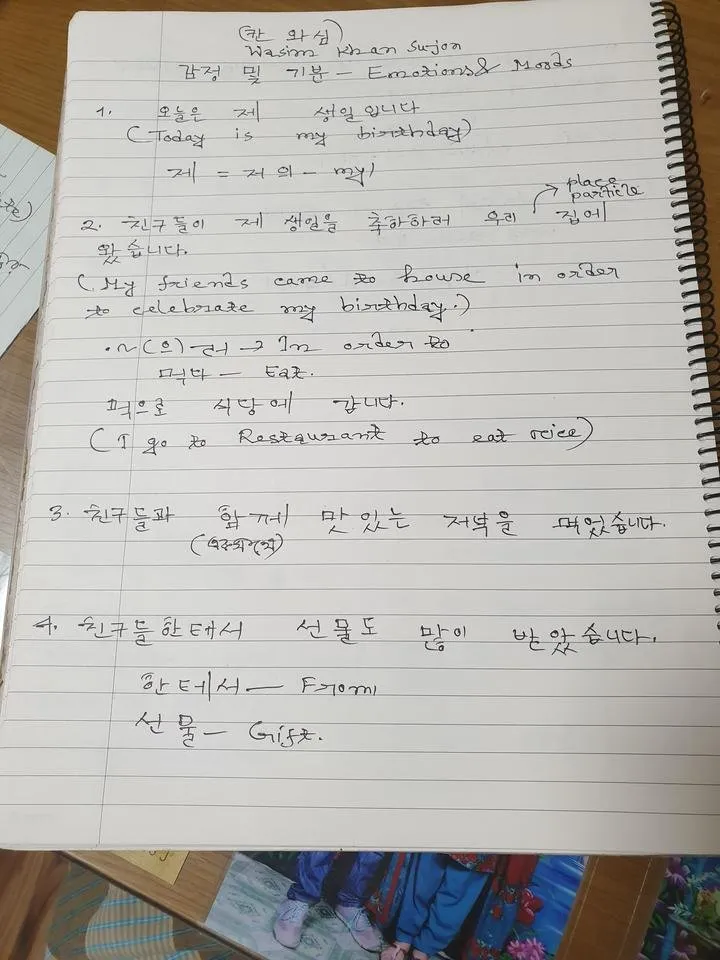 (칸 와심)
Wasim Khan Sujon
감정 및 기분 - Emotions & Moods
1. 오늘은 제 생일입니다
(Today is my birthday)
제 = 저의 - my
place particle
2. 친구들이 제 생일을 축하하러 우리 집에
왔습니다.
(My friends came to house in order
to celebrate my birthday.)
·~(으)러 → In order to
먹다 - Eat.
먹으로 식당에 갑니다.
(I go to Restaurant to eat rice)
3. 친구들과 함께 맛있는 저녁을 먹었습니다.
(একসাথে)
4. 친구들한테서 선물도 많이 받았습니다.
한테서 - From
선물 - Gift.